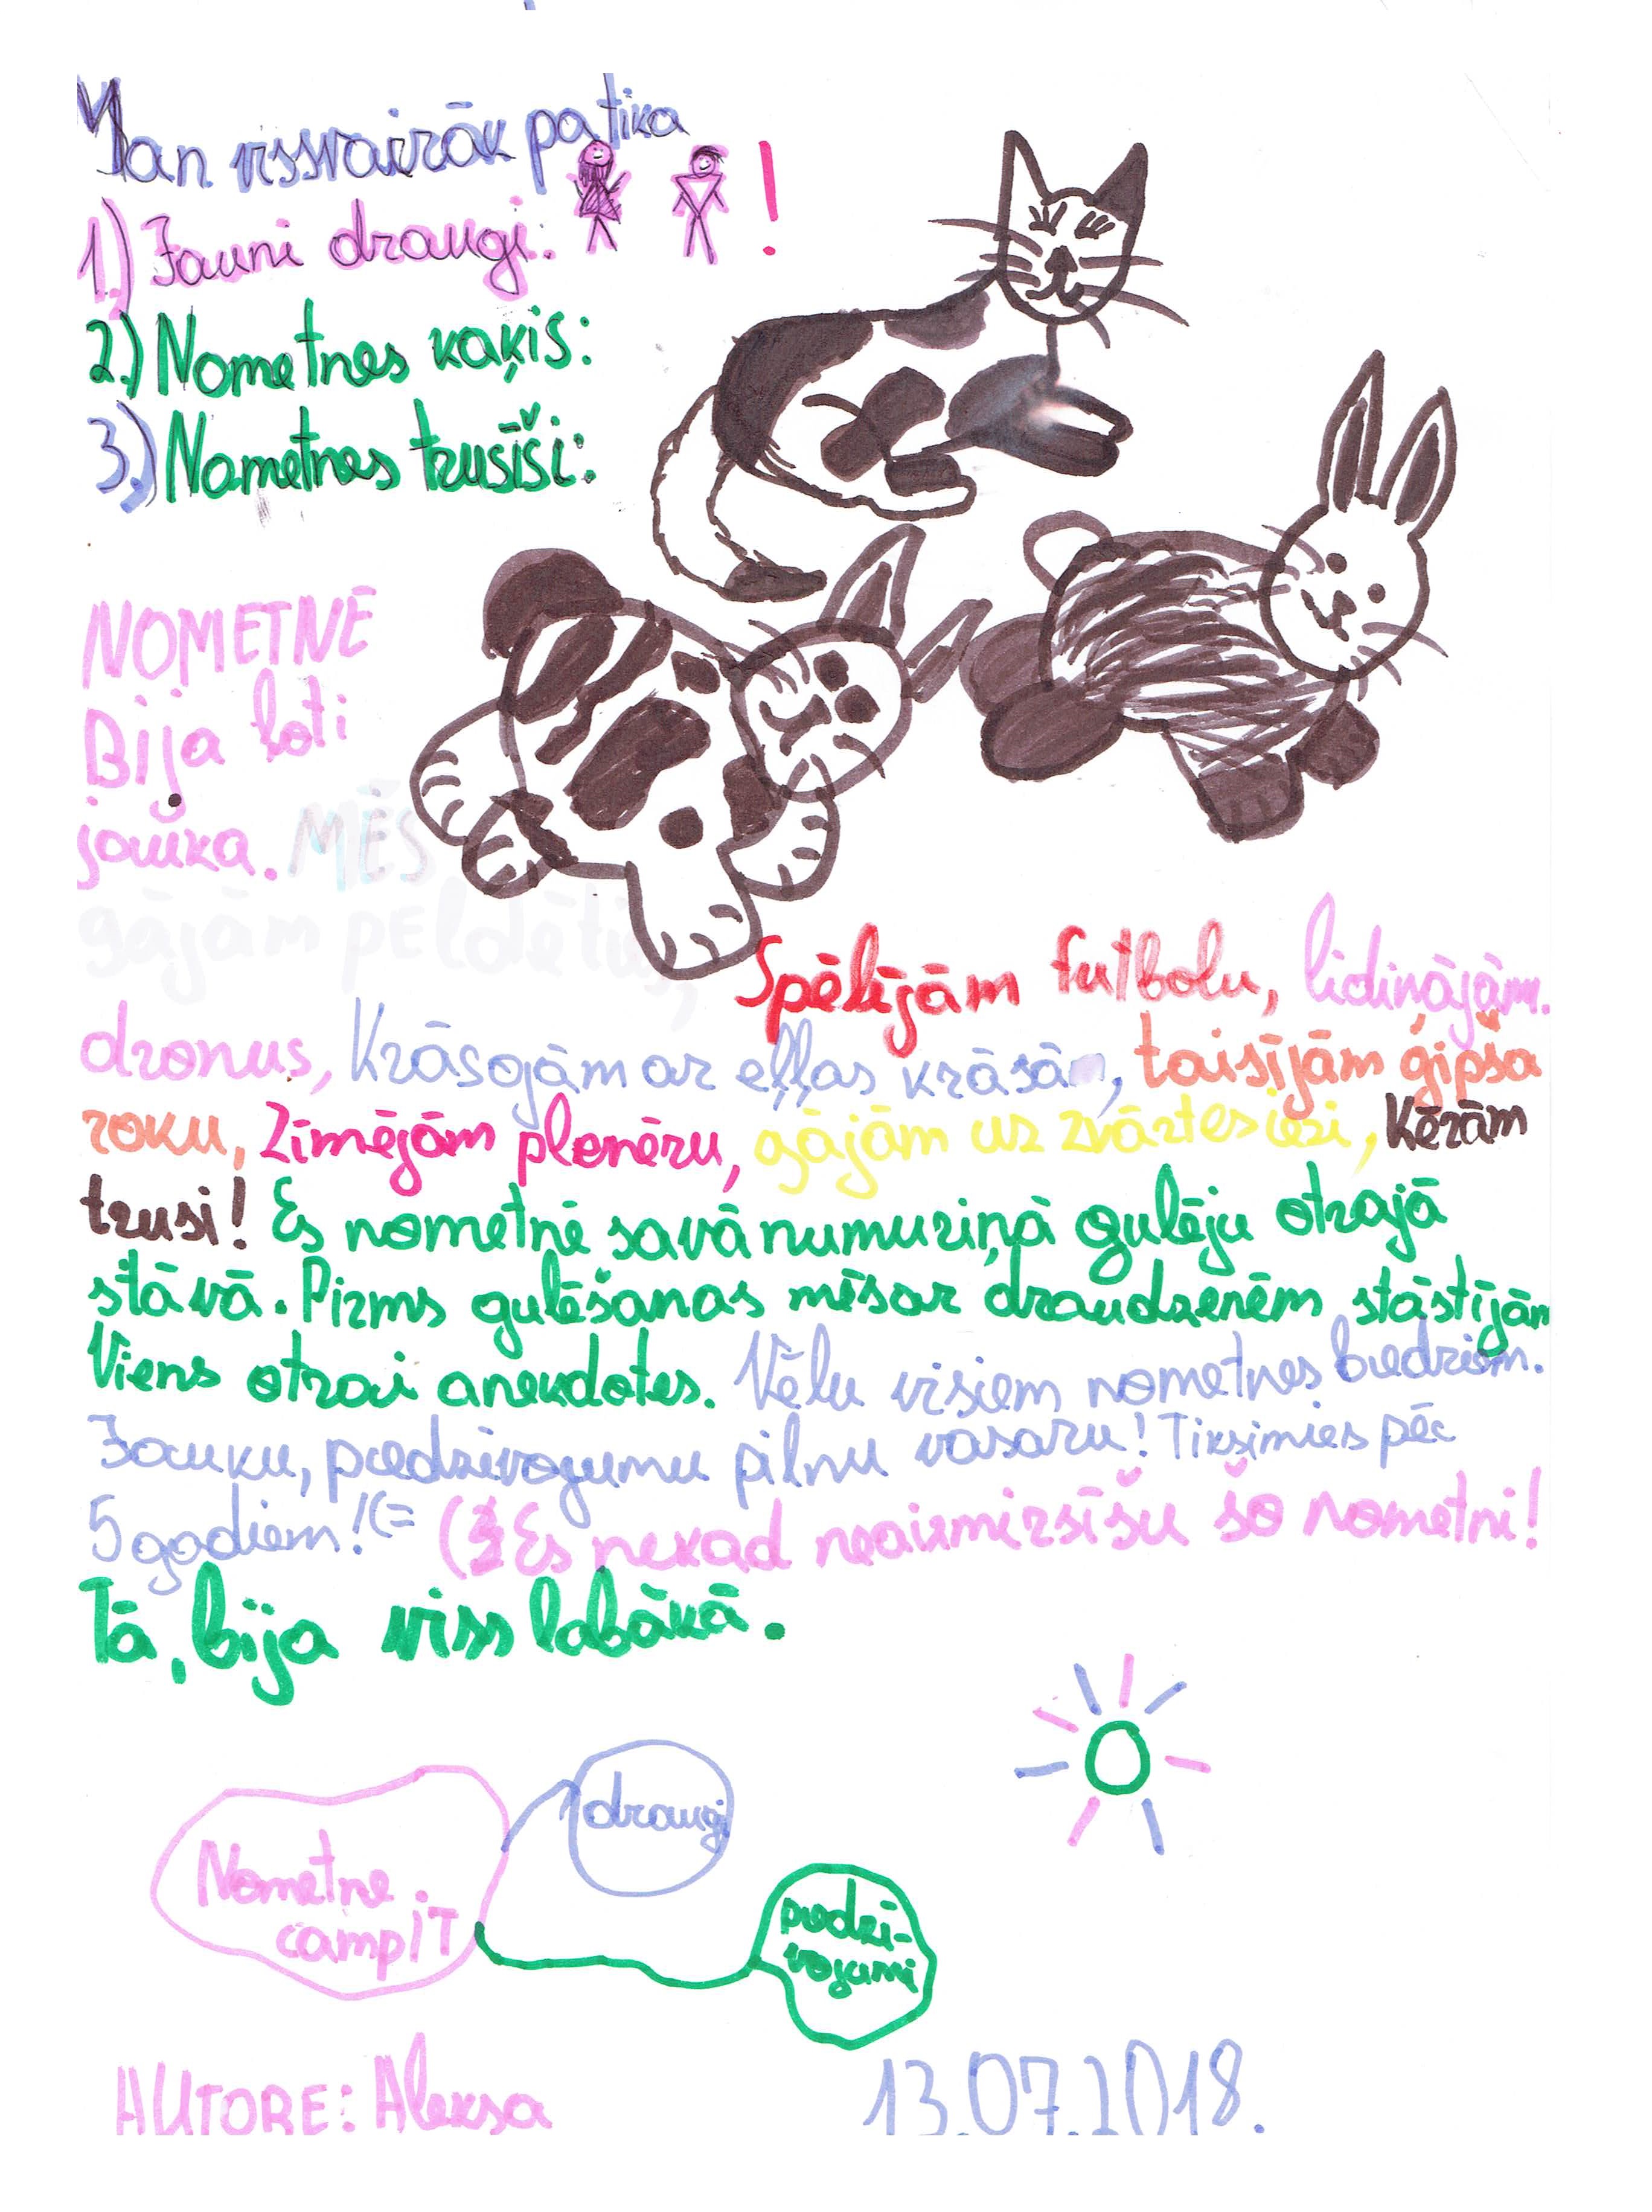 Man vissvairāk patika
1.) Jauni draugi: !
2.) Nometnes kaķis:
3.) Nometnes trusīši:
NOMETNĒ
Bija ļoti
jauka. MĒS
gājām pEldēties,
Spēlējām futbolu, lidinājām
dronus, Krāsojām ar eļļas krāsām, taisījām ģipša
roku, Zīmējām plenēru, gājām uz zvārtes iezi, Ķērām
trusi! Es nometnē savā numuriņā gulēju otrajā
stāvā. Pirms gulēšanas mēs ar draudzenēm stāstījām
Viens otrai anekdotes. Vēlu visiem nometnes biedriem.
Jauku, piedzīvojumu pilnu vasaru! Tiksimies pēc
5 godiem! (= (Es nekad neaizmirsīšu šo nometni!
Tā, bija viss labākā.
draugi
Nometne
campIT
piedzī-
vojumi
AUTORE: Aleksa
13.07.2018.